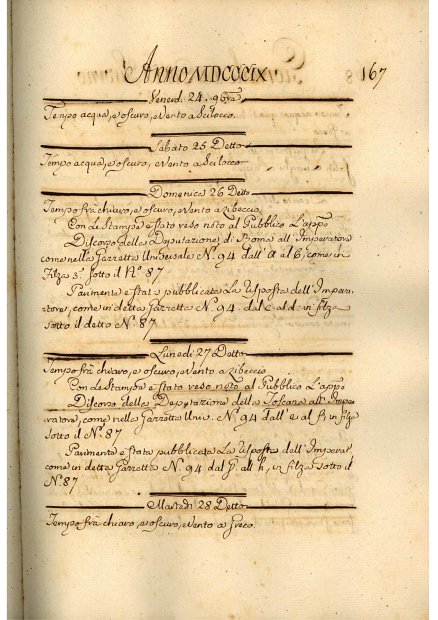 Anno MDCCCIX
167
Venerdi 24. 9bre
Tempo acqua, e oscuro, e Vento a Scilocco.
Sabato 25 Detto
Tempo acqua, e oscuro, e Vento a Scilocco.
Domenica 26 Detto
Tempo frà chiaro, e oscuro, e Vento a Libeccio
Con le Stampe è stato reso noto al Pubblico L'app.o
Discorso della Deputazione di Roma all' Imperatore
come nella Gazzetta Universale N.o 94 dall' a al b, come in
Filza 3.a sotto il N.o 87
Parimente è stata pubblicata La risposta dell' Impera-
tore, come in detta Gazzetta N.o 94. dal c al d. in filza
sotto il detto N.o 87
Lunedi 27 Detto
Tempo frà chiaro, e oscuro, e Vento a Libeccio
Con le Stampe è stato reso noto al Pubblico L'app.o
Discorso della Deputazione della Toscana all' Impe-
ratore, come nella Gazzetta Univ. N.o 94 dall' e al f, in filza
sotto il N.o 87
Parimente è stata pubblicata La risposta dell' Imperat.
come in detta Gazzetta N.o 94 dal g. all' h, in filza sotto il
N.o 87
Martedi 28 Detto
Tempo frà chiaro, e oscuro, e Vento a Greco.